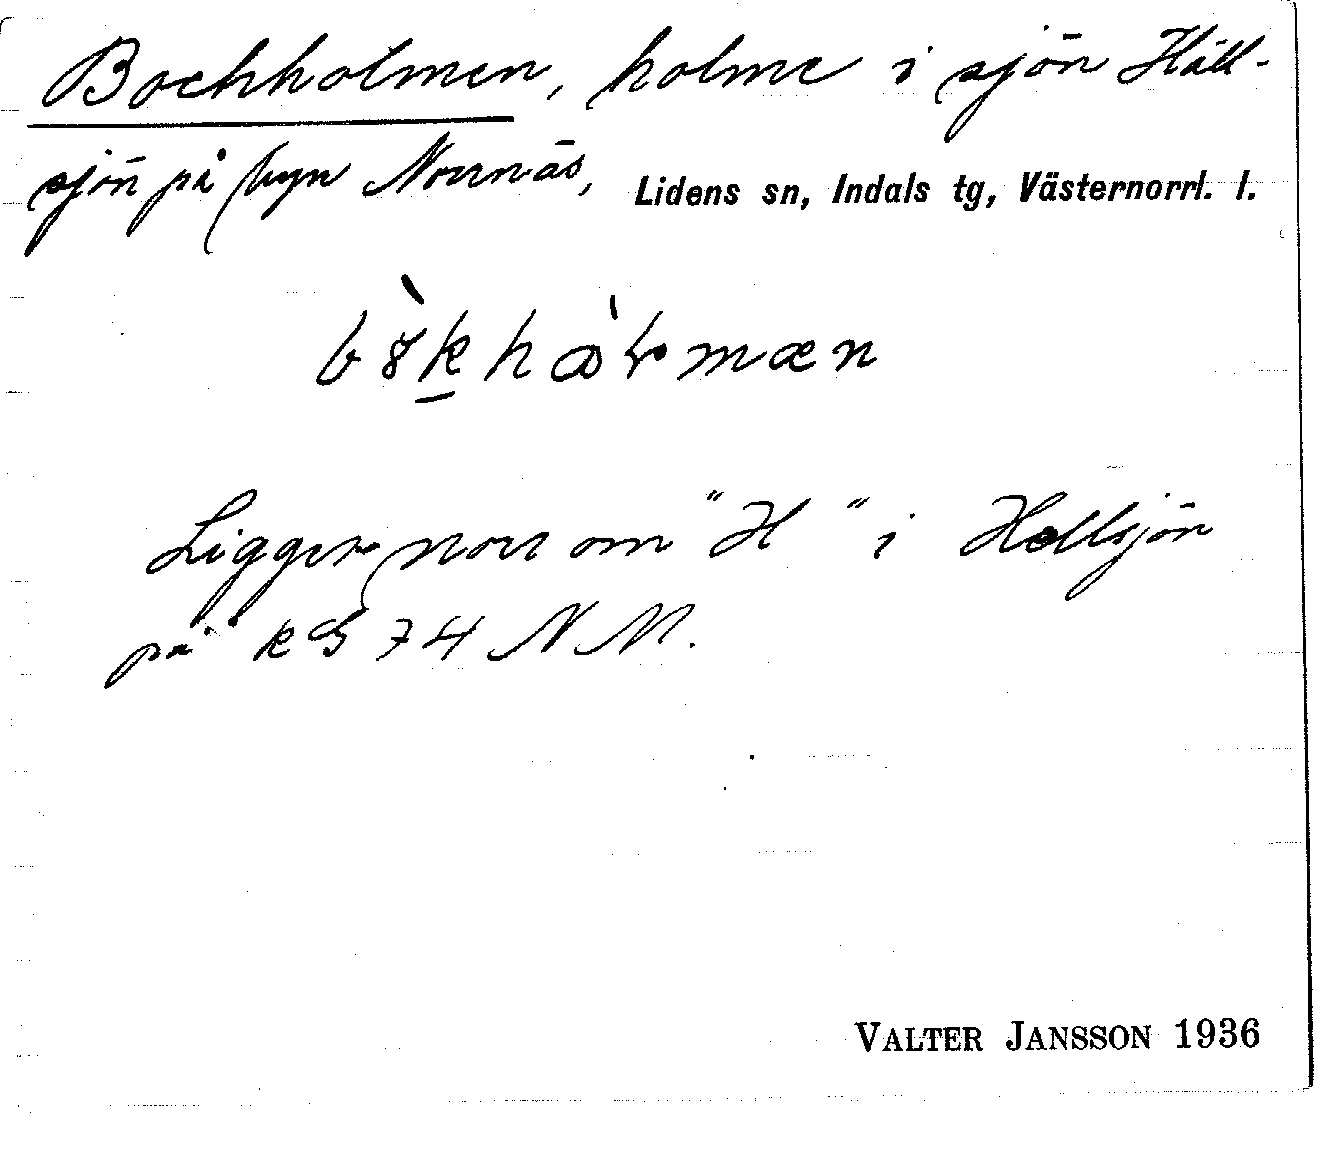 Bockholmen, holme i sjön Häll-
sjön på byn Norrnäs, Lidens sn, Indals tg, Västernorrl. l.
Ligger norr om "H" i Hellsjön
på kB 74 NM.
VALTER JANSSON 1936